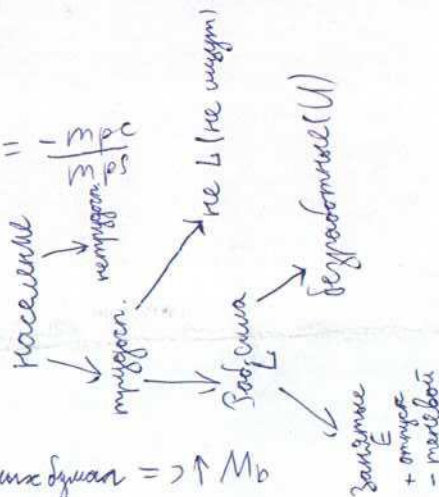 = -mpc/mps
население
нетрудосп.
трудосп.
не L (не ищут)
Раб. сила
L
безработные (U)
занятые
E
+ отпуск
- теневой
бумаг => ↑ Mb